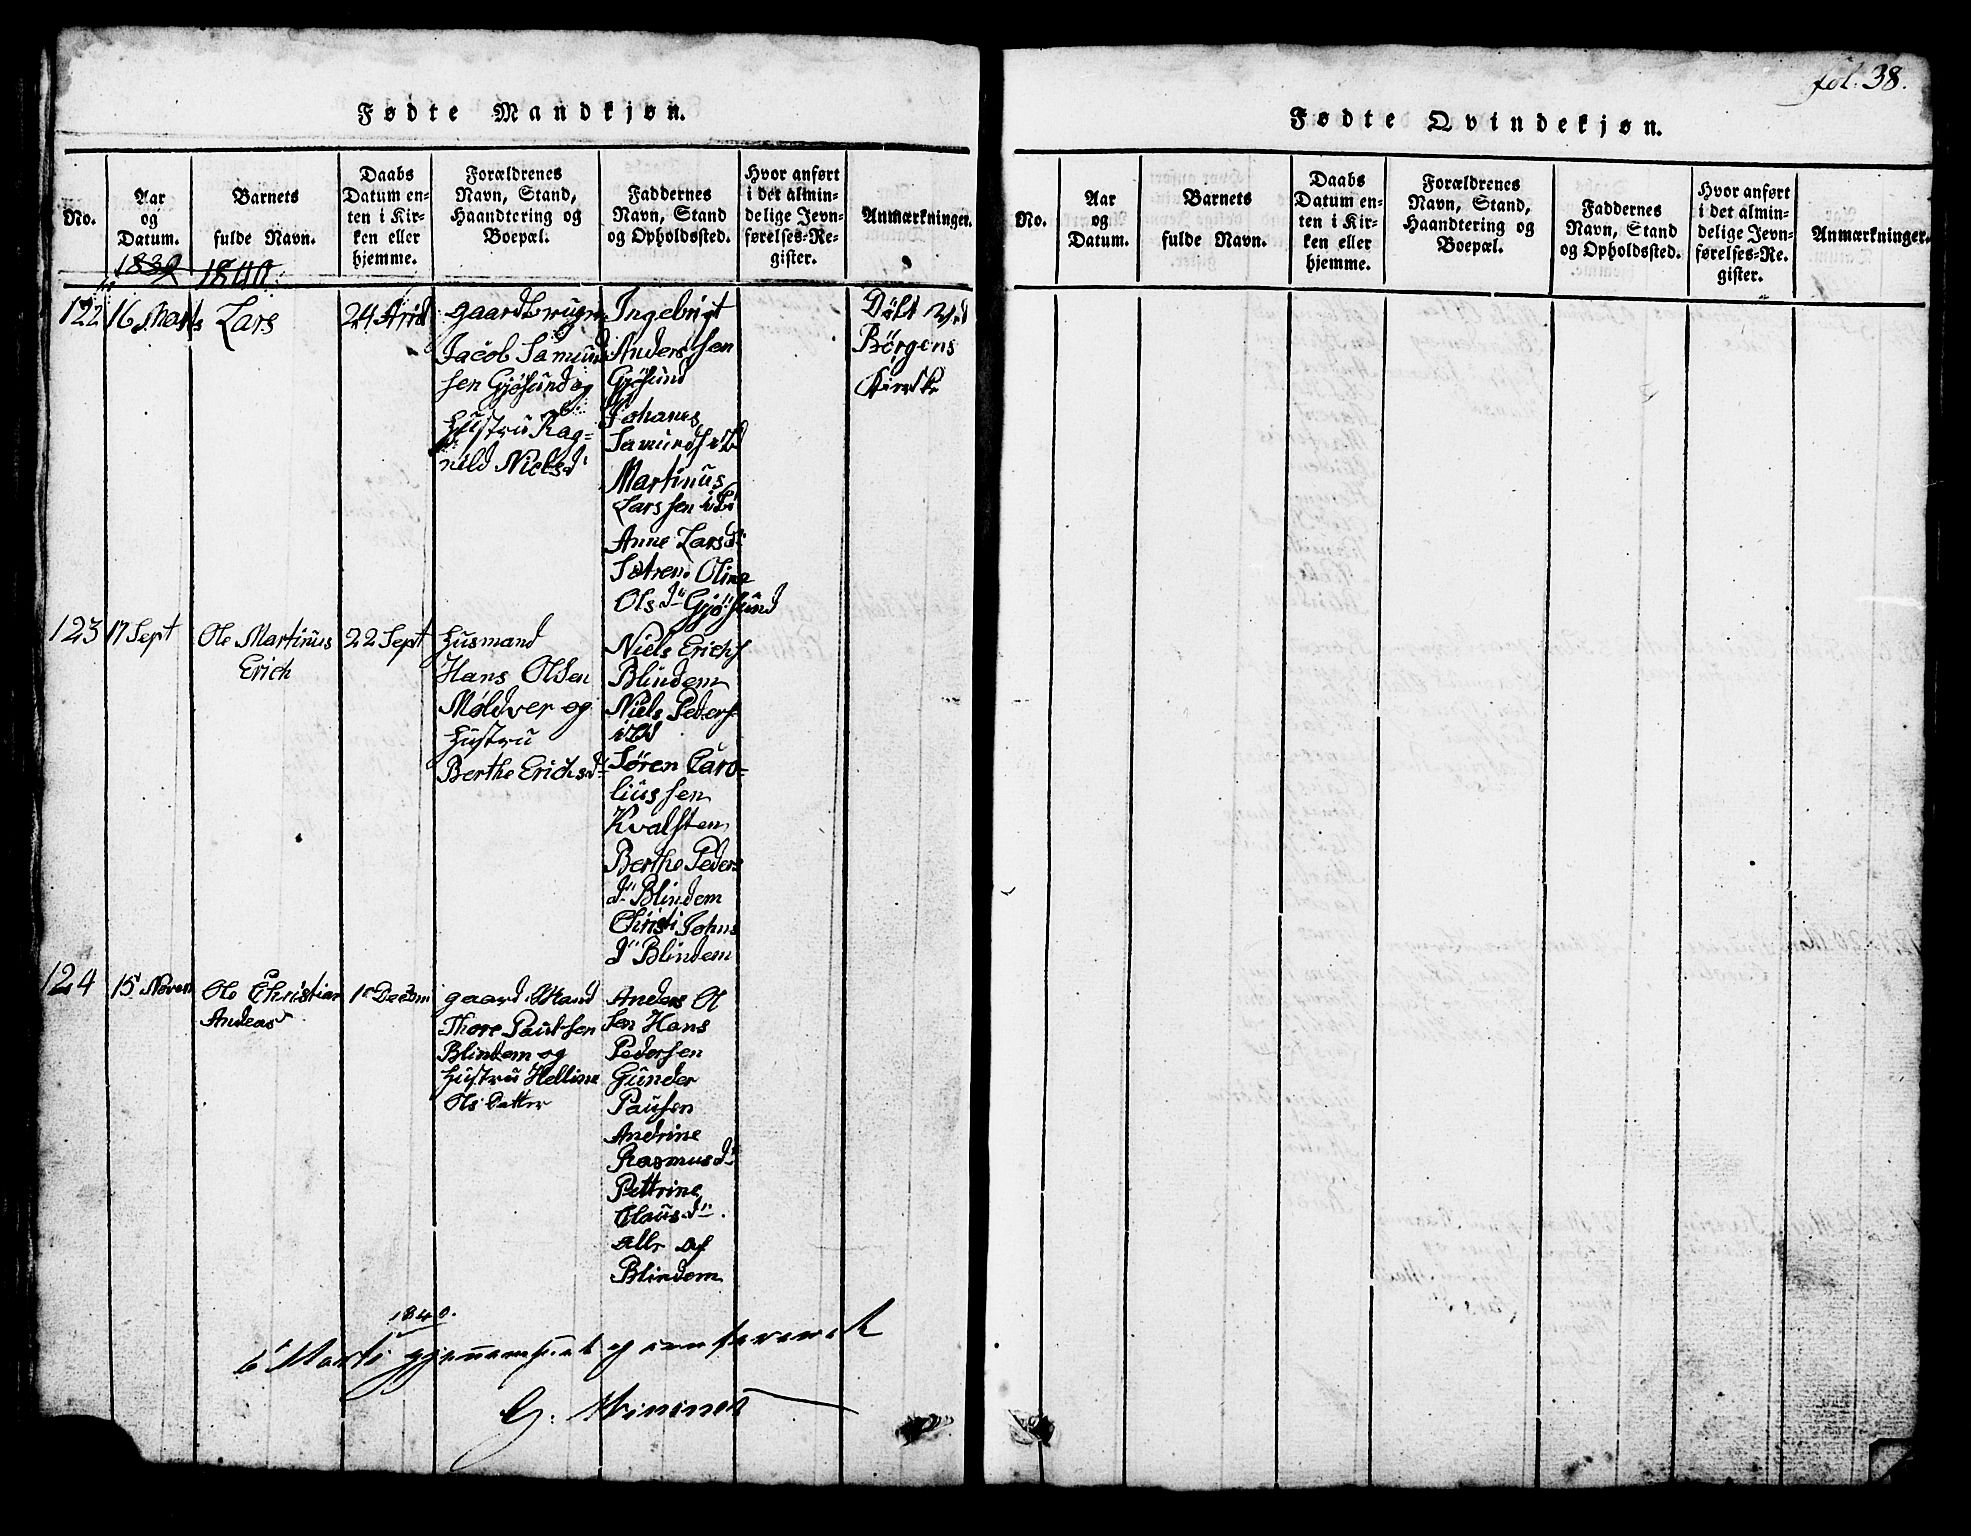 fol. 38.
Fødte Mandkjøn.
No.
Aar
og
Datum.
Barnets
fulde Navn.
Daabs
Datum en-
ten i Kir-
ken eller
hjemme.
Forældrenes
Navn, Stand,
Haandtering og
Boepæl.
Faddernes
Navn, Stand
og Opholdssted.
Hvor anført
i det almin-
delige Jevn-
førelses-Re-
gister.
Anmærkninger.
1839 1840
122
16 Marts
Lars
24 April
gaardbruger
Jacob Samund
sen Gjøsund og
Hustru Rag-
nild Nielsd
Ingebrigt
Anderssen
Gjøsund
Johanes
Samundsen
Martinus
Larssen
Anne Larsd
Sætren. Oline
Olsd Gjøsund
Døbt ved
Børgens
Kirke
123
17 Sept
Ole Martinus
Erich
22 Sept
Husmand
Hans Olsen
Møldver og
Hustru
Berthe Erichsd
Niels Erichs
Blindem
Niels Peders
ibd
Søren Caro-
liussen
Kvalsten
Berthe Peders
d Blindem
Christi Johns
d Blindem
124
15 Novem
Ole Christian
Andeas
1 Decbm
gaardmand
Thore Paulsen
Blindem og
Hustru Helline
Ols Datter
Anders Ol
sen Hans
Pedersen
Gunder
Pausen
Andrine
Rasmusd
Pettrine
Clausd
alle af
Blindem
1840.
6 Marts gjennemseet og
G.
Fødte Qvindekjøn.
No.
Aar
og
Datum.
Barnets
fulde Navn.
Daabs
Datum en-
ten i Kir-
ken eller
hjemme.
Forældrenes
Navn, Stand,
Haandtering og
Boepæl.
Faddernes
Navn, Stand
og Opholdssted.
Hvor anført
i det almin-
delige Jevn-
førelses-Re-
gister.
Anmærkninger.